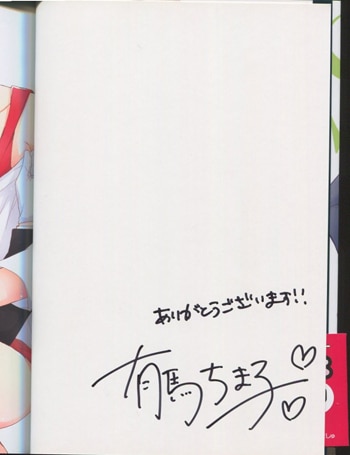 ありがとうございます!!
有馬ちまろ♡♡
しゅ